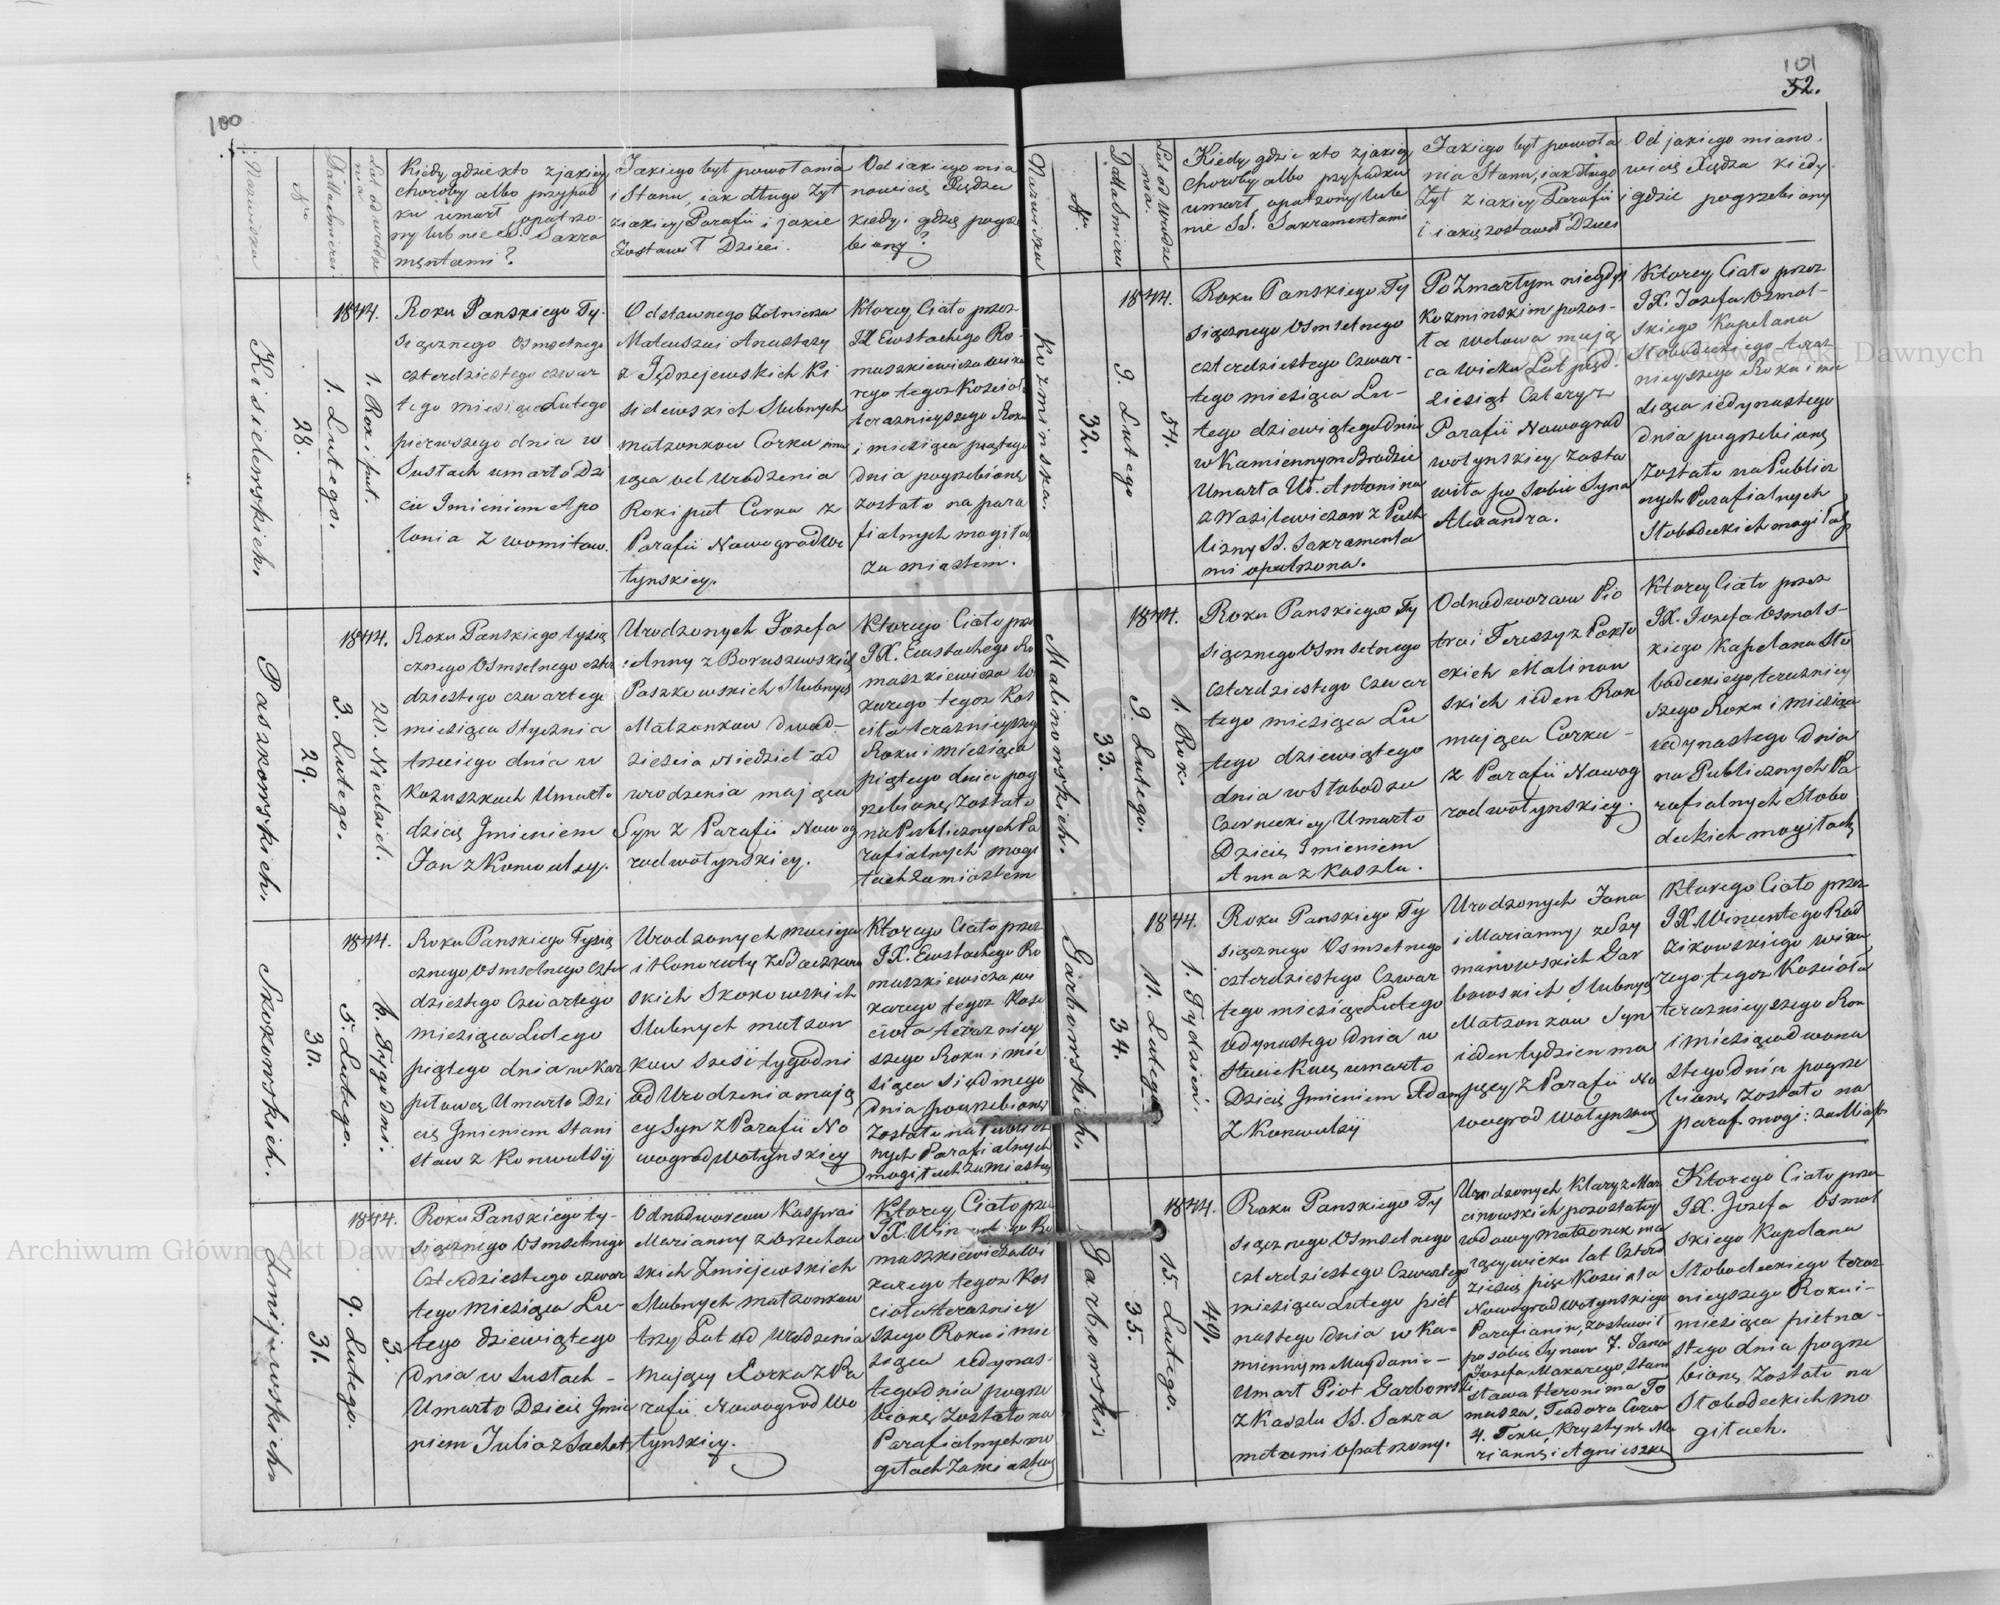 100
Nazwiska
Nro
Data śmierci
Lat od urodze
nia
Kiedy gdzie kto z jakiey
choroby albo przypad
ku umarł opatrzo-
ny lub nie SS. Sakra
mentami?
Jakiego był powołania
i Stanu, jak długo żył
z iakiey Parafii i jakie
Zostawił Dzieci.
Od iakiego mia
nowicie Xiędza
kiedy i gdzie pogrze
biony?
Kisielewskich.
28.
1844.
1. Lutego.
1. Rok i puł.
Roku Panskiego Ty-
siącznego Osmsetnego
czterdziestego czwar
tego miesiąca Lutego
pierwszego dnia w
Susłach umarło Dzi
cie Imieniem Apo
lonia z womitow.
Odstawnego Żołnierza
Mateusza i Anastazy
z Jędrzejewskich Ki
sielewskich Slubnych
małzonkow Corka ma
iąca od Urodzenia
Rok i puł Corka z
Parafii Nowogradwo
łynskiey.
Ktorey Ciało przez
JX Eustachego Ro-
maszkiewicza wika
rego tegoz Kościoła
teraznieyszego Roku
i miesiąca piątego
dnia pogrzebione
zostało na para
fialnych mogiłach
za miastem.
Paszkowskich.
29.
1844.
3. Lutego.
20. Niedziel.
Roku Panskiego tysią
cznego Osmsetnego czter
dziestego czwartego
miesiąca Stycznia
trzeciego dnia w
Kozuszkach Umarło
dzicię Imieniem
Jan z Konwulsy.
Urodzonych Jozefa
i Anny z Boruszewskich
Paszkowskich Slubnych
Małzonkow dwad-
zieścia Niedziel od
urodzenia mający
Syn z Parafii Nowog
rodwołynskiey.
Ktorego Ciało prz
JX. Eustachego Ro
maszkiewicza Wi
karego tegoz Koś
cioła teraznieyszego
Roku i Miesiąca
piątego dnia pog
rzebione Zostało
na Publicznych Pa
rafialnych mogi
łach Zamiastem
Skokowskich.
30.
1844.
5. Lutego.
6. Tygodni.
Roku Panskiego Tysią
cznego Osmsetnego Czter
dziestego Czwartego
miesiąca Lutego
piątego dnia w Kar
piłowce Umarło Dzi
cię Imieniem Stani
sław z Konwulsij
Urodzonych Macieja
i Honoraty z Baczkow
skich Skokowskich
Slubnych małzon
kow sześć tygodni
od Urodzenia mają
cy Syn z Parafii No
wogradwołynskiey
Ktorego Ciało przez
JX. Eustachego Ro
maszkiewicza wi
karego tegoz Koś
cioła terazniey
szego Roku i mie
siąca siódmego
dnia pogrzebione
zostało na Publicz
nych Parafialnych
mogiłach zamiastem
Zmijewskich
31.
1844.
9. Lutego.
3.
Roku Panskiego ty-
siącznego Osmsetnego
Czterdziestego czwar
tego Miesiąca Lu-
tego dziewiątego
Dnia w Susłach -
Umarło Dzicię Imie
niem Julia z Suchot
Odnodworcow Kaspra i
Marianny z Orzechow
skich Zmijewskich
Slubnych małzonkow
trzy Lat od Urodzenia
Mający Corka z Pa
rafii Nowogrod Wo
łynskiey.
Ktorey Ciało prze
JX. Win
maszkiewicza Wi
karego tegoz Koś
cioła terazniey
szego Roku i mie
siąca iedynas-
tego dnia pogrze
bione Zostało na
Parafialnych mo
giłach Zamiastem
101
52.
Nazwiska
Nro.
Data śmierci
Lat od Urodze
nia.
Kiedy gdzie kto z jakiey
choroby albo przypadku
umarł opatrzony lub
nie SS. Sakramentami
Jakiego był powoła
nia Stanu, iak długo
żył z iakiey Parafii
i iakie zostawił Dzieci
Od jakiego miano-
wicie Xiędza kiedy
i gdzie pogrzebiony
Kozminska.
32.
1844.
9. Lutego
54.
Roku Panskiego Ty
siącznego Osmsetnego
czterdziestego czwar-
tego miesiąca Lu-
tego dziewiątego dnia
w Kamiennym Brodzie
Umarła Ur. Antonina
z Wasilewiczow z Puch
lizny SS. Sakramenta
mi opatrzona.
Po Zmartym niegdys
Kozminskim pozos-
ła wdowa mają
ca wieku Lat pięd-
ziesiąt Cztery z
Parafii Nowograd
wołynskiey zosta
wiła po sobie Syna
Alexandra.
Ktorey Ciało przez
JX. Jozefa Osmol-
skiego Kapelana
Słobodeckiego teraz
nieyszego Roku i mie
siąca iedynastego
dnia pogrzebione
zostało na Publicz
nych Parafialnych
Słobodeckich mogiłach
Malinowskich.
33.
1844.
9. Lutego.
1. Rok.
Roku Panskiego Ty
siącznego Osmsetnego
Czterdziestego Czwar
tego miesiąca Lu
tego dziewiątego
dnia w Słobodzie
Czerneckiey Umarło
Dzicię Imieniem
Anna z Kaszlu.
Odnodworcow Pio
tra i Teressy z Pokło
ckich Malinow
skich ieden Rok
mająca Corka -
z Parafii Nowog
rodwołynskiey.
Ktorey Ciało przez
JX. Jozefa Osmols-
kiego Kapelana Sło
bodeckiego teraźniey
szego Roku i miesiąca
iedynastego Dnia
na Publicznych Pa
rafialnych Słobo
deckich mogiłach
Garbowskich.
34.
1844.
11. Lutego
1. Tydzień.
Roku Panskiego Ty
siącznego Osmsetnego
czterdziestego Czwar
tego miesiąca Lutego
iedynastego Dnia w
umarło
Dzicię Imieniem Adam
z Konwulsij
Urodzonych Jana
i Marianny z Szy
manowskich Gar
bowskich Slubnych
Małzonkow Syn
ieden tydzien ma
jący z Parafii No
wogrod wołynskiey
Ktorego Ciało przez
JX. Wincentego Rad
zikowskiego wika
rego tegoz Kościoła
teraznieyszego Roku
i miesiąca dwona
stego Dnia pogrze
bione zostało na
paraf. mogi: za Mias
Garbowski
35.
1844.
15. Lutego.
49.
Roku Panskiego Ty
siącznego Osmsetnego
czterdziestego Czwartego
miesiąca Lutego piet
nastego dnia w Ka-
miennym Maydanie -
Umarł Piot Garbowski
z Kaszlu SS. Sakra
metami opatrzony.
Urodzonych Klary z Mar
cinowskich pozostałey
wdowy małzonek ma
iący wieku lat Czterd
ziesci pięć Kościoła
Nowogradwołynskiego
Parafianin, zostawił
po sobie Synow 7. Jana
Jozefa Makarego, Stani
sława Heronima To
masza, Teodora Corow
4. Teklę, Krystynę Ma
riannę i Agnieszkę
Ktorego Ciało przez
JX. Jozefa Osmol
skiego Kapelana
Słobodeckiego teraz
nieyszego Roku i-
miesiąca pietna-
stego dnia pogrze
bione zostało na
Słobodeckich mo
giłach.
Archiwum Główne Akt Dawnych
Archiwum Główne Akt Dawnych